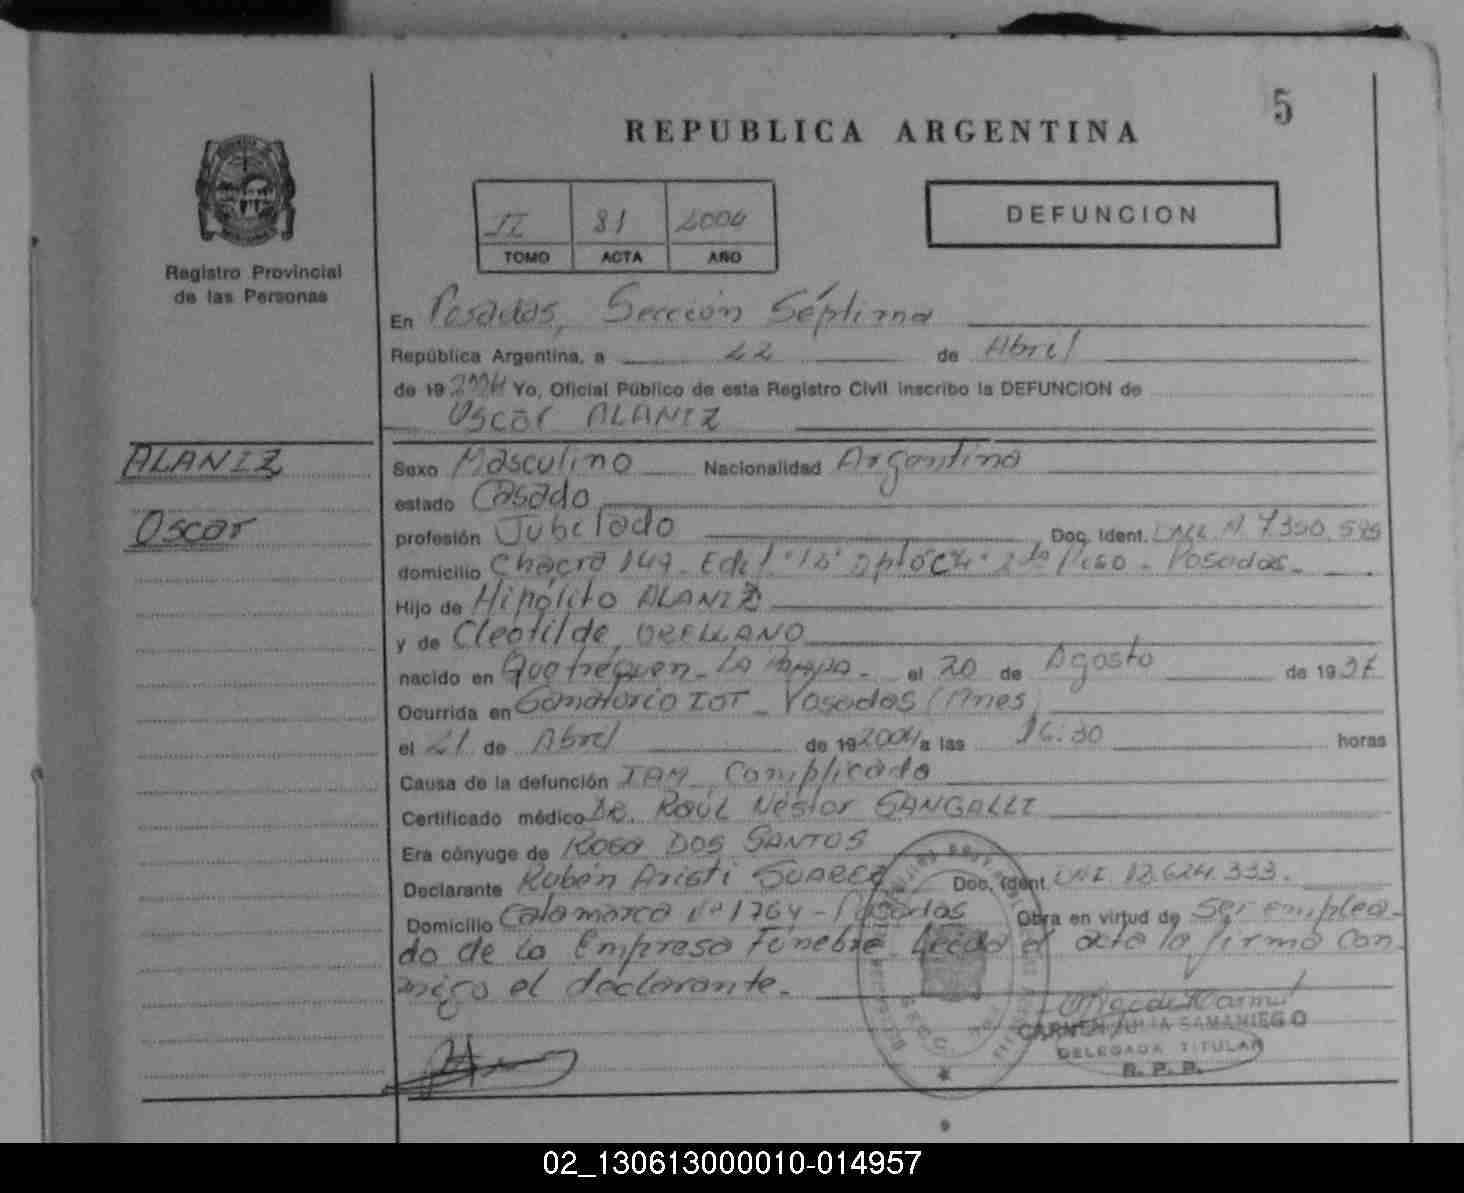 5
REPUBLICA ARGENTINA
DEFUNCION
II 81 2004
TOMO ACTA AÑO
Registro Provincial
de las Personas
En Posadas, Sección Séptima
República Argentina, a 22 de Abril
de 19 2004 Yo, Oficial Público de este Registro Civil inscribo la DEFUNCION de
Oscar ALANIZ
ALANIZ
Oscar
Sexo Masculino Nacionalidad Argentina
estado Casado
profesión Jubilado Doc. Ident. 7.350.595
domicilio Chacra 149 - Edif. "15" Dpto "C" 2do Piso - Posadas -
Hijo de Hipólito ALANIZ
y de Cleotilde ORELLANO
nacido en Quetrequen - La Pampa - el 20 de Agosto de 19
Ocurrida en Sanatorio IOT - Posadas (Mnes)
el 21 de Abril de 19 2004 a las 16:30 horas
Causa de la defunción IAM Complicado
Certificado médico Dr. Raúl Néstor SANGALLI
Era cónyuge de Rosa DOS SANTOS
Declarante Rubén Aristi SUAREZ Doc. Ident. DNI. 12.624.333.
Domicilio Catamarca Nº 1764 - Posadas Obra en virtud de Ser emplea-
do de la Empresa Fúnebre. Leída el acta la firma con-
migo el declarante.
CARMEN JULIA SAMANIEGO
DELEGADA TITULAR
R. P. P.
9
02_130613000010-014957